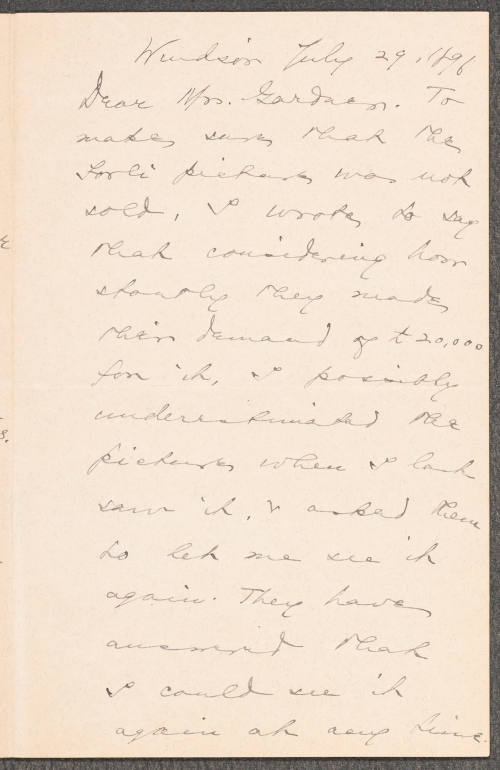 Windsor July 29, 1896
Dear Mrs. Gardner. To
make sure that the
Forli picture was not
sold, I wrote to say
that considering how
stoutly they made
their demand of £20,000
for it, I possibly
underestimated the
picture when I last
saw it, & asked them
to let me see it
again. They have
answered that
I could see it
again at any time.